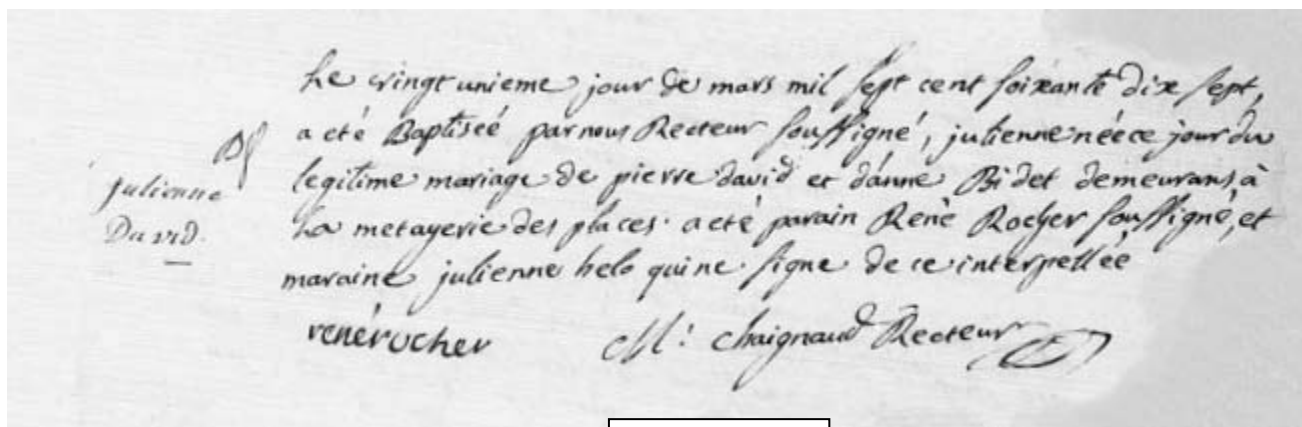 Le vingt unieme jour de mars mil sept cent soixante dix sept,
a eté Baptiseé par nous Recteur soussigné, julienne néece jour du
B
julienne
David.
legitime mariage de pierre david et danne Bidet demeurans à
La metayerie des places. a eté parain Renè Rocher soussigné, et
maraine julienne helo qui ne signe de ce interpelleé
renérocher M: Chaignaud Recteur